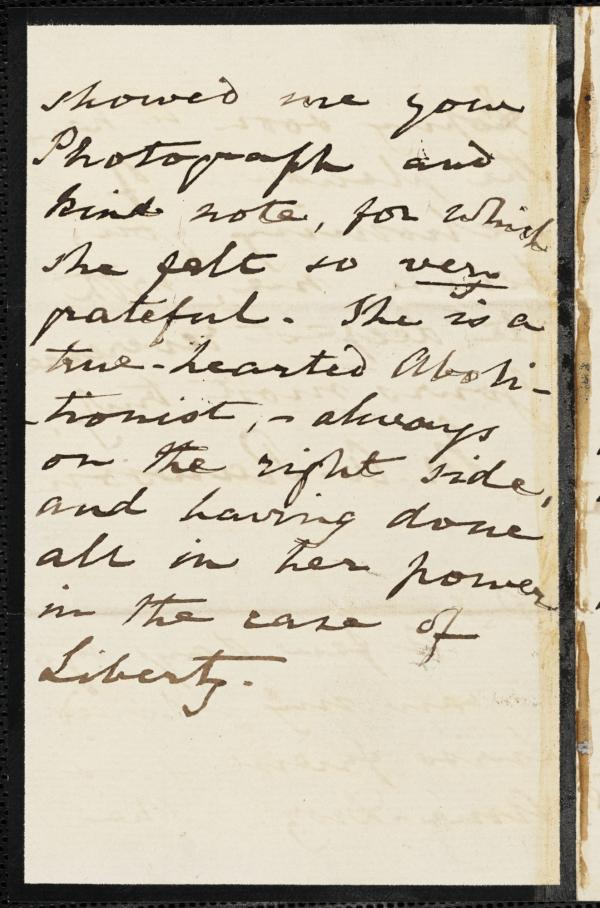 showed me your
Photograph and
kind note, for which
she felt so very
grateful. She is a
true-hearted Aboli-
-tionist, - always
on the right side,
and having done
all in her power
in the case of
Liberty.